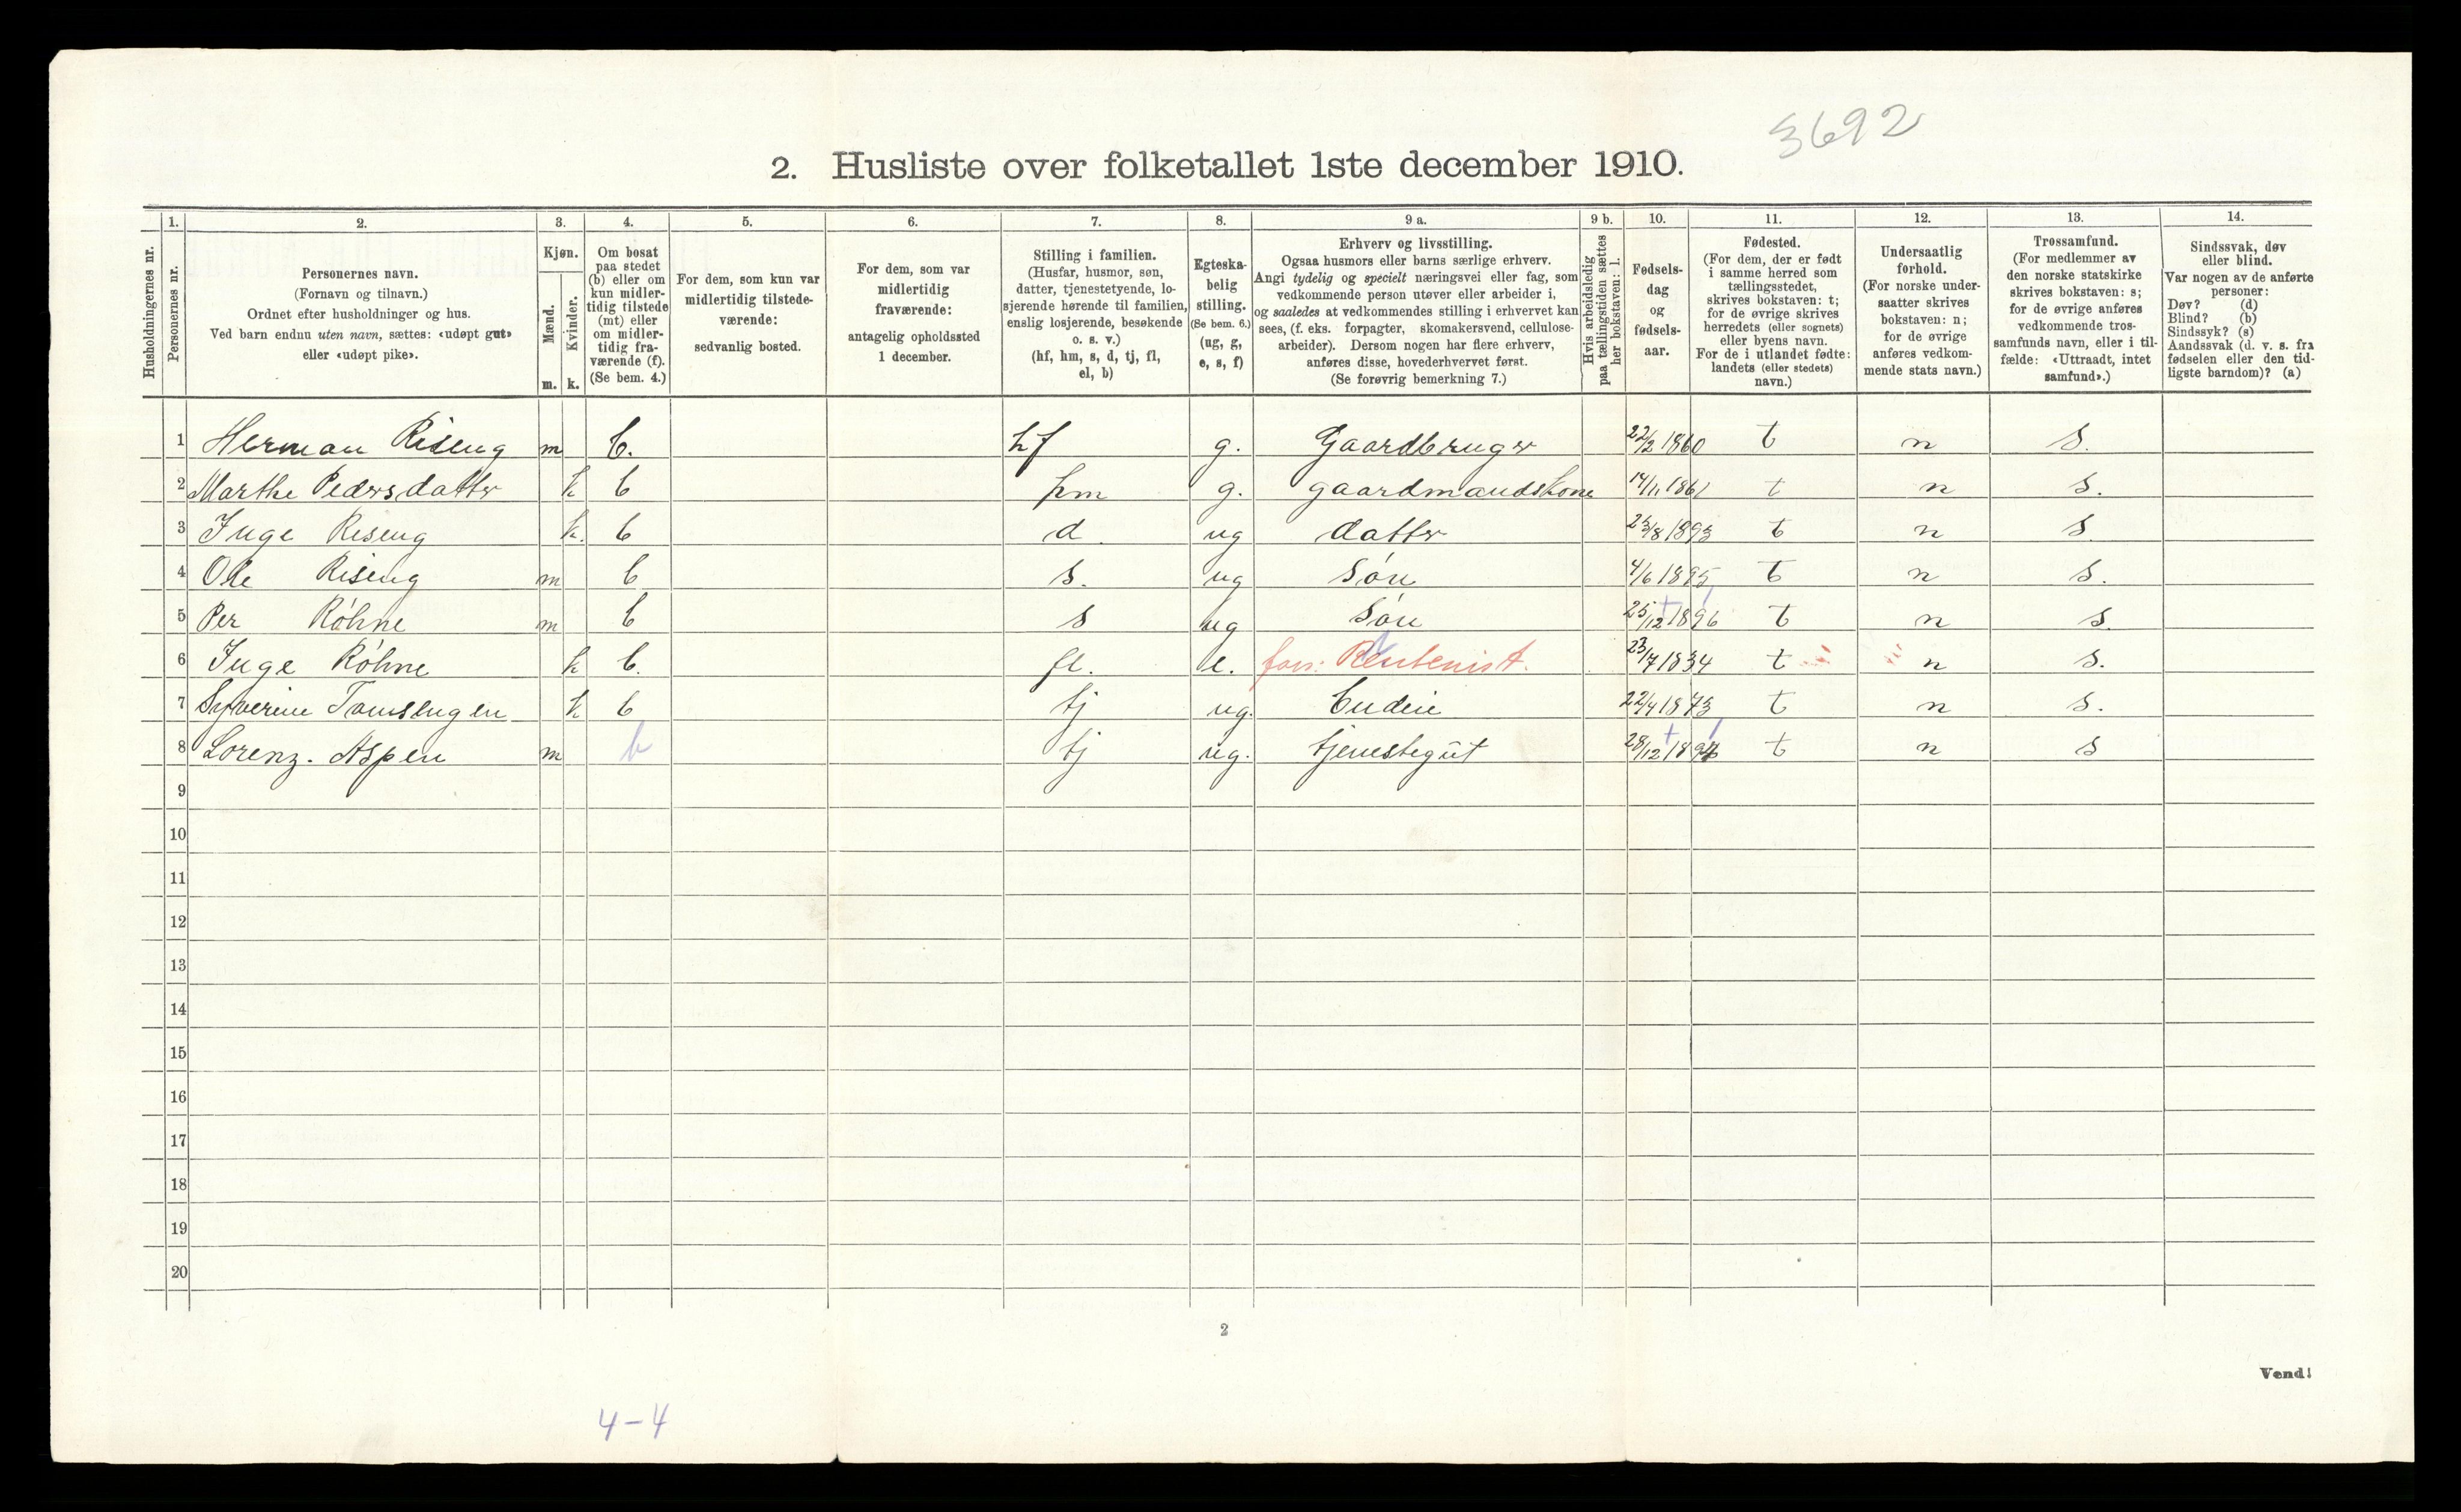 3692
2. Husliste over folketallet 1ste december 1910.
1. 2. 3. 4. 5. 6. 7. 8. 9 a. 9 b. 10. 11. 12. 13. 14.
Husholdningernes nr.
Personernes nr.
Personernes navn.
(Fornavn og tilnavn.)
Ordnet efter husholdninger og hus.
Ved barn endnu uten navn, sættes: «udøpt gut»
eller «udøpt pike».
Kjøn.
Mænd.
Kvinder.
m. k.
Om bosat
paa stedet
(b) eller om
kun midler-
tidig tilstede
(mt) eller
om midler-
tidig fra-
værende (f).
(Se bem. 4.)
For dem, som kun var
midlertidig tilstede-
værende:
sedvanlig bosted.
For dem, som var
midlertidig
fraværende:
antagelig opholdssted
1 december.
Stilling i familien.
(Husfar, husmor, søn,
datter, tjenestetyende, lo-
sjerende hørende til familien,
enslig losjerende, besøkende
o. s. v.)
(hf, hm, s, d, tj, fl,
el, b)
Egteska-
belig
stilling.
(Se bem. 6.)
(ug, g,
e, s, f)
Erhverv og livsstilling.
Ogsaa husmors eller barns særlige erhverv.
Angi tydelig og specielt næringsvei eller fag, som
vedkommende person utøver eller arbeider i,
og saaledes at vedkommendes stilling i erhvervet kan
sees, (f. eks. forpagter, skomakersvend, cellulose-
arbeider). Dersom nogen har flere erhverv,
anføres disse, hovederhvervet først.
(Se forøvrig bemerkning 7.)
Hvis arbeidsledig
paa tællingstiden sættes
her bokstaven: l.
Fødsels-
dag
og
fødsels-
aar.
Fødested.
(For dem, der er født
i samme herred som
tællingsstedet,
skrives bokstaven: t;
for de øvrige skrives
herredets (eller sognets)
eller byens navn.
For de i utlandet fødte:
landets (eller stedets)
navn.)
Undersaatlig
forhold.
(For norske under-
saatter skrives
bokstaven: n;
for de øvrige
anføres vedkom-
mende stats navn.)
Trossamfund.
(For medlemmer av
den norske statskirke
skrives bokstaven: s;
for de øvrige anføres
vedkommende tros-
samfunds navn, eller i til-
fælde: «Uttraadt, intet
samfund».)
Sindssvak, døv
eller blind.
Var nogen av de anførte
personer:
Døv? (d)
Blind? (b)
Sindssyk? (s)
Aandssvak (d. v. s. fra
fødselen eller den tid-
ligste barndom)? (a)
1 Herman Riseng m b. hf g. Gaardbruger 22/2 1860 t n s.
2 Marthe Pedersdatter k b hm g. gaardmandskone 14/11 1861 t n s.
3 Inge Riseng k. b d. ug datter 23/8 1893 t n s.
4 Ole Riseng m b s. ug Søn 4/6 1895 t n s.
5 Per Röhne m b s ug Søn 25/12 1896 t n s.
6 Inge Röhne k b. fl. e. fors: Rentenist. 23/7 1834 t n s.
7 Syverine Tamsengen k b tj ug. budeie 22/4 1873 t n s.
8 Lorenz. Aspen m b tj ug. tjenestegut 28/12 t n s
9
10
11
12
13
14
15
16
17
18
19
20
2
Vend!
4-4